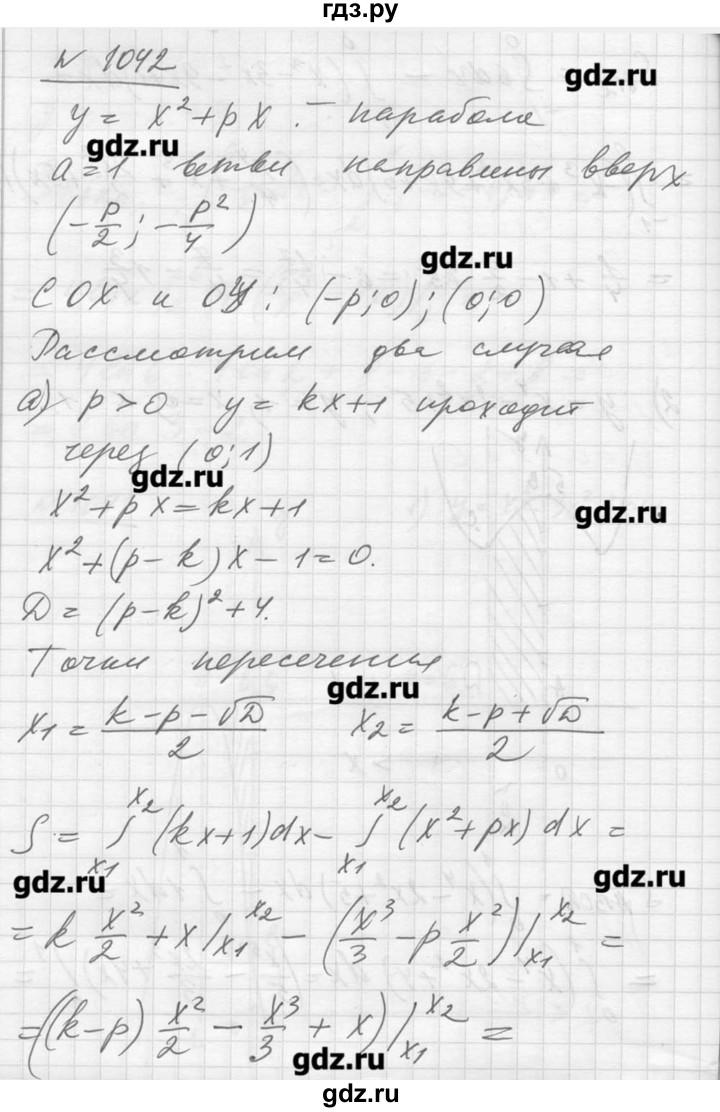 гдз.ру
N 1042
gdz.ru
y = x² + px. – парабола
gdz.ru
a=1 ветви направлены вверх
(-p/2; -p²/4)
gdz.ru
С OX и OY: (-p;0); (0;0)
Рассмотрим два случая
а) p>0 y = kx+1 проходит
через (0;1)
gdz.ru
x²+px=kx+1
gdz.ru
x²+(p-k)x-1=0.
D = (p-k)²+4.
Точки пересечения
gdz.ru
x₁ = (k-p-√D)/2 x₂ = (k-p+√D)/2
S = ∫_{x₁}^{x₂} (kx+1)dx - ∫_{x₁}^{x₂} (x²+px)dx =
gdz.ru
gdz.ru
= k x²/2 + x /_{x₁}^{x₂} - (x³/3 - p x²/2)/_{x₁}^{x₂} =
= ((k-p) x²/2 - x³/3 + x)/_{x₁}^{x₂} =
gdz.ru
gdz.ru